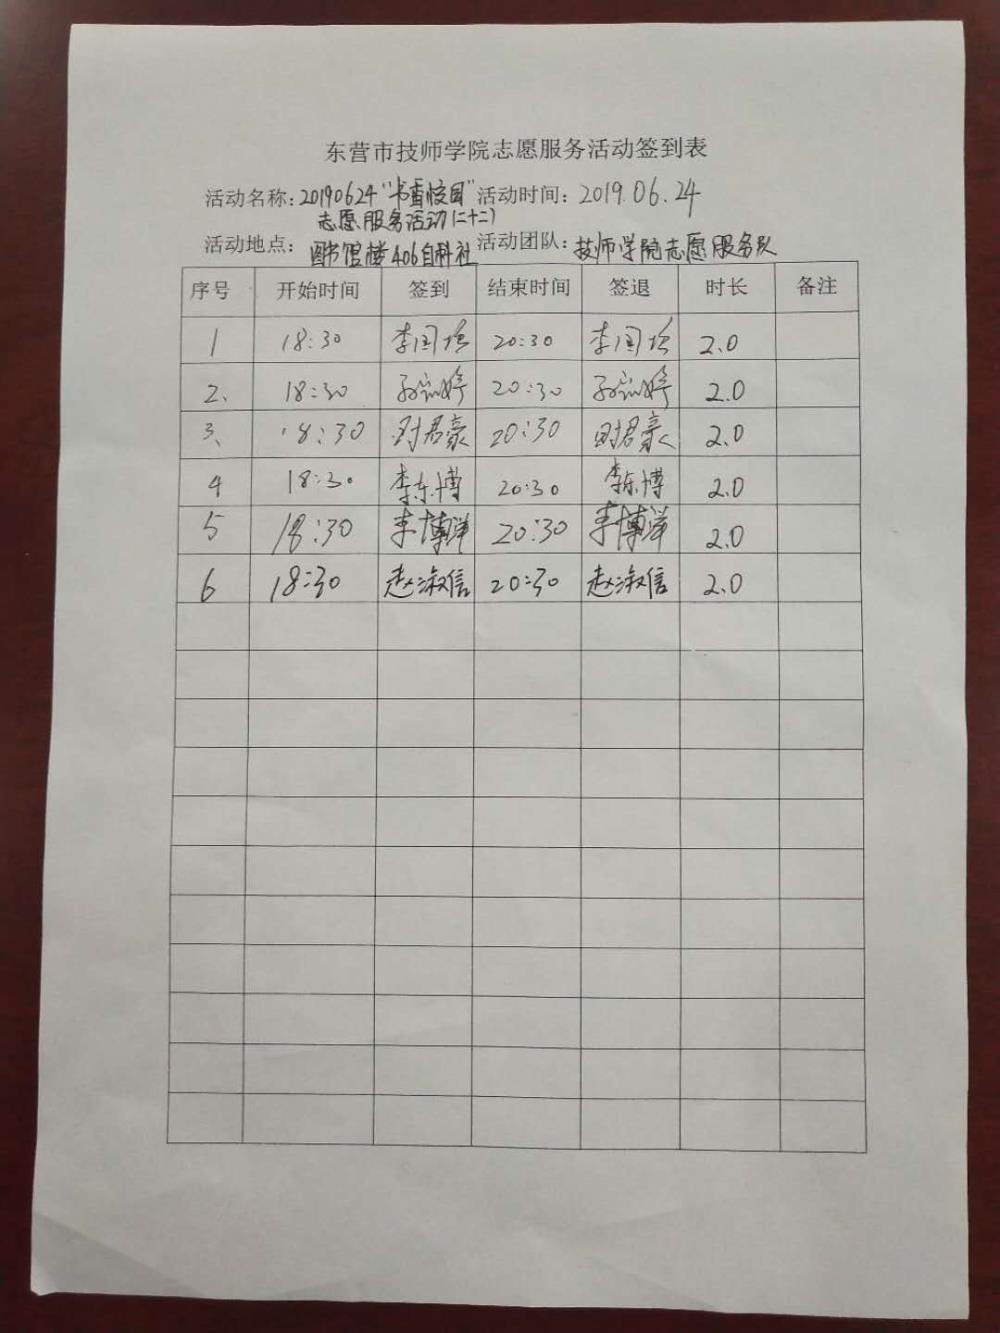 东营市技师学院志愿服务活动签到表
活动名称：20190624“书香校园” 活动时间：2019.06.24
志愿服务活动(二十二)
活动地点：图书馆楼406自科社 活动团队：技师学院志愿服务队
序号 开始时间 签到 结束时间 签退 时长 备注
1 18:30 李国 20:30 李国 2.0
2、 18:30 婷 20:30 婷 2.0
3、 18:30 君豪 20:30 君豪 2.0
4 18:30 李东博 20:30 李东博 2.0
5 18:30 李博洋 20:30 李博洋 2.0
6 18:30 赵淑信 20:30 赵淑信 2.0